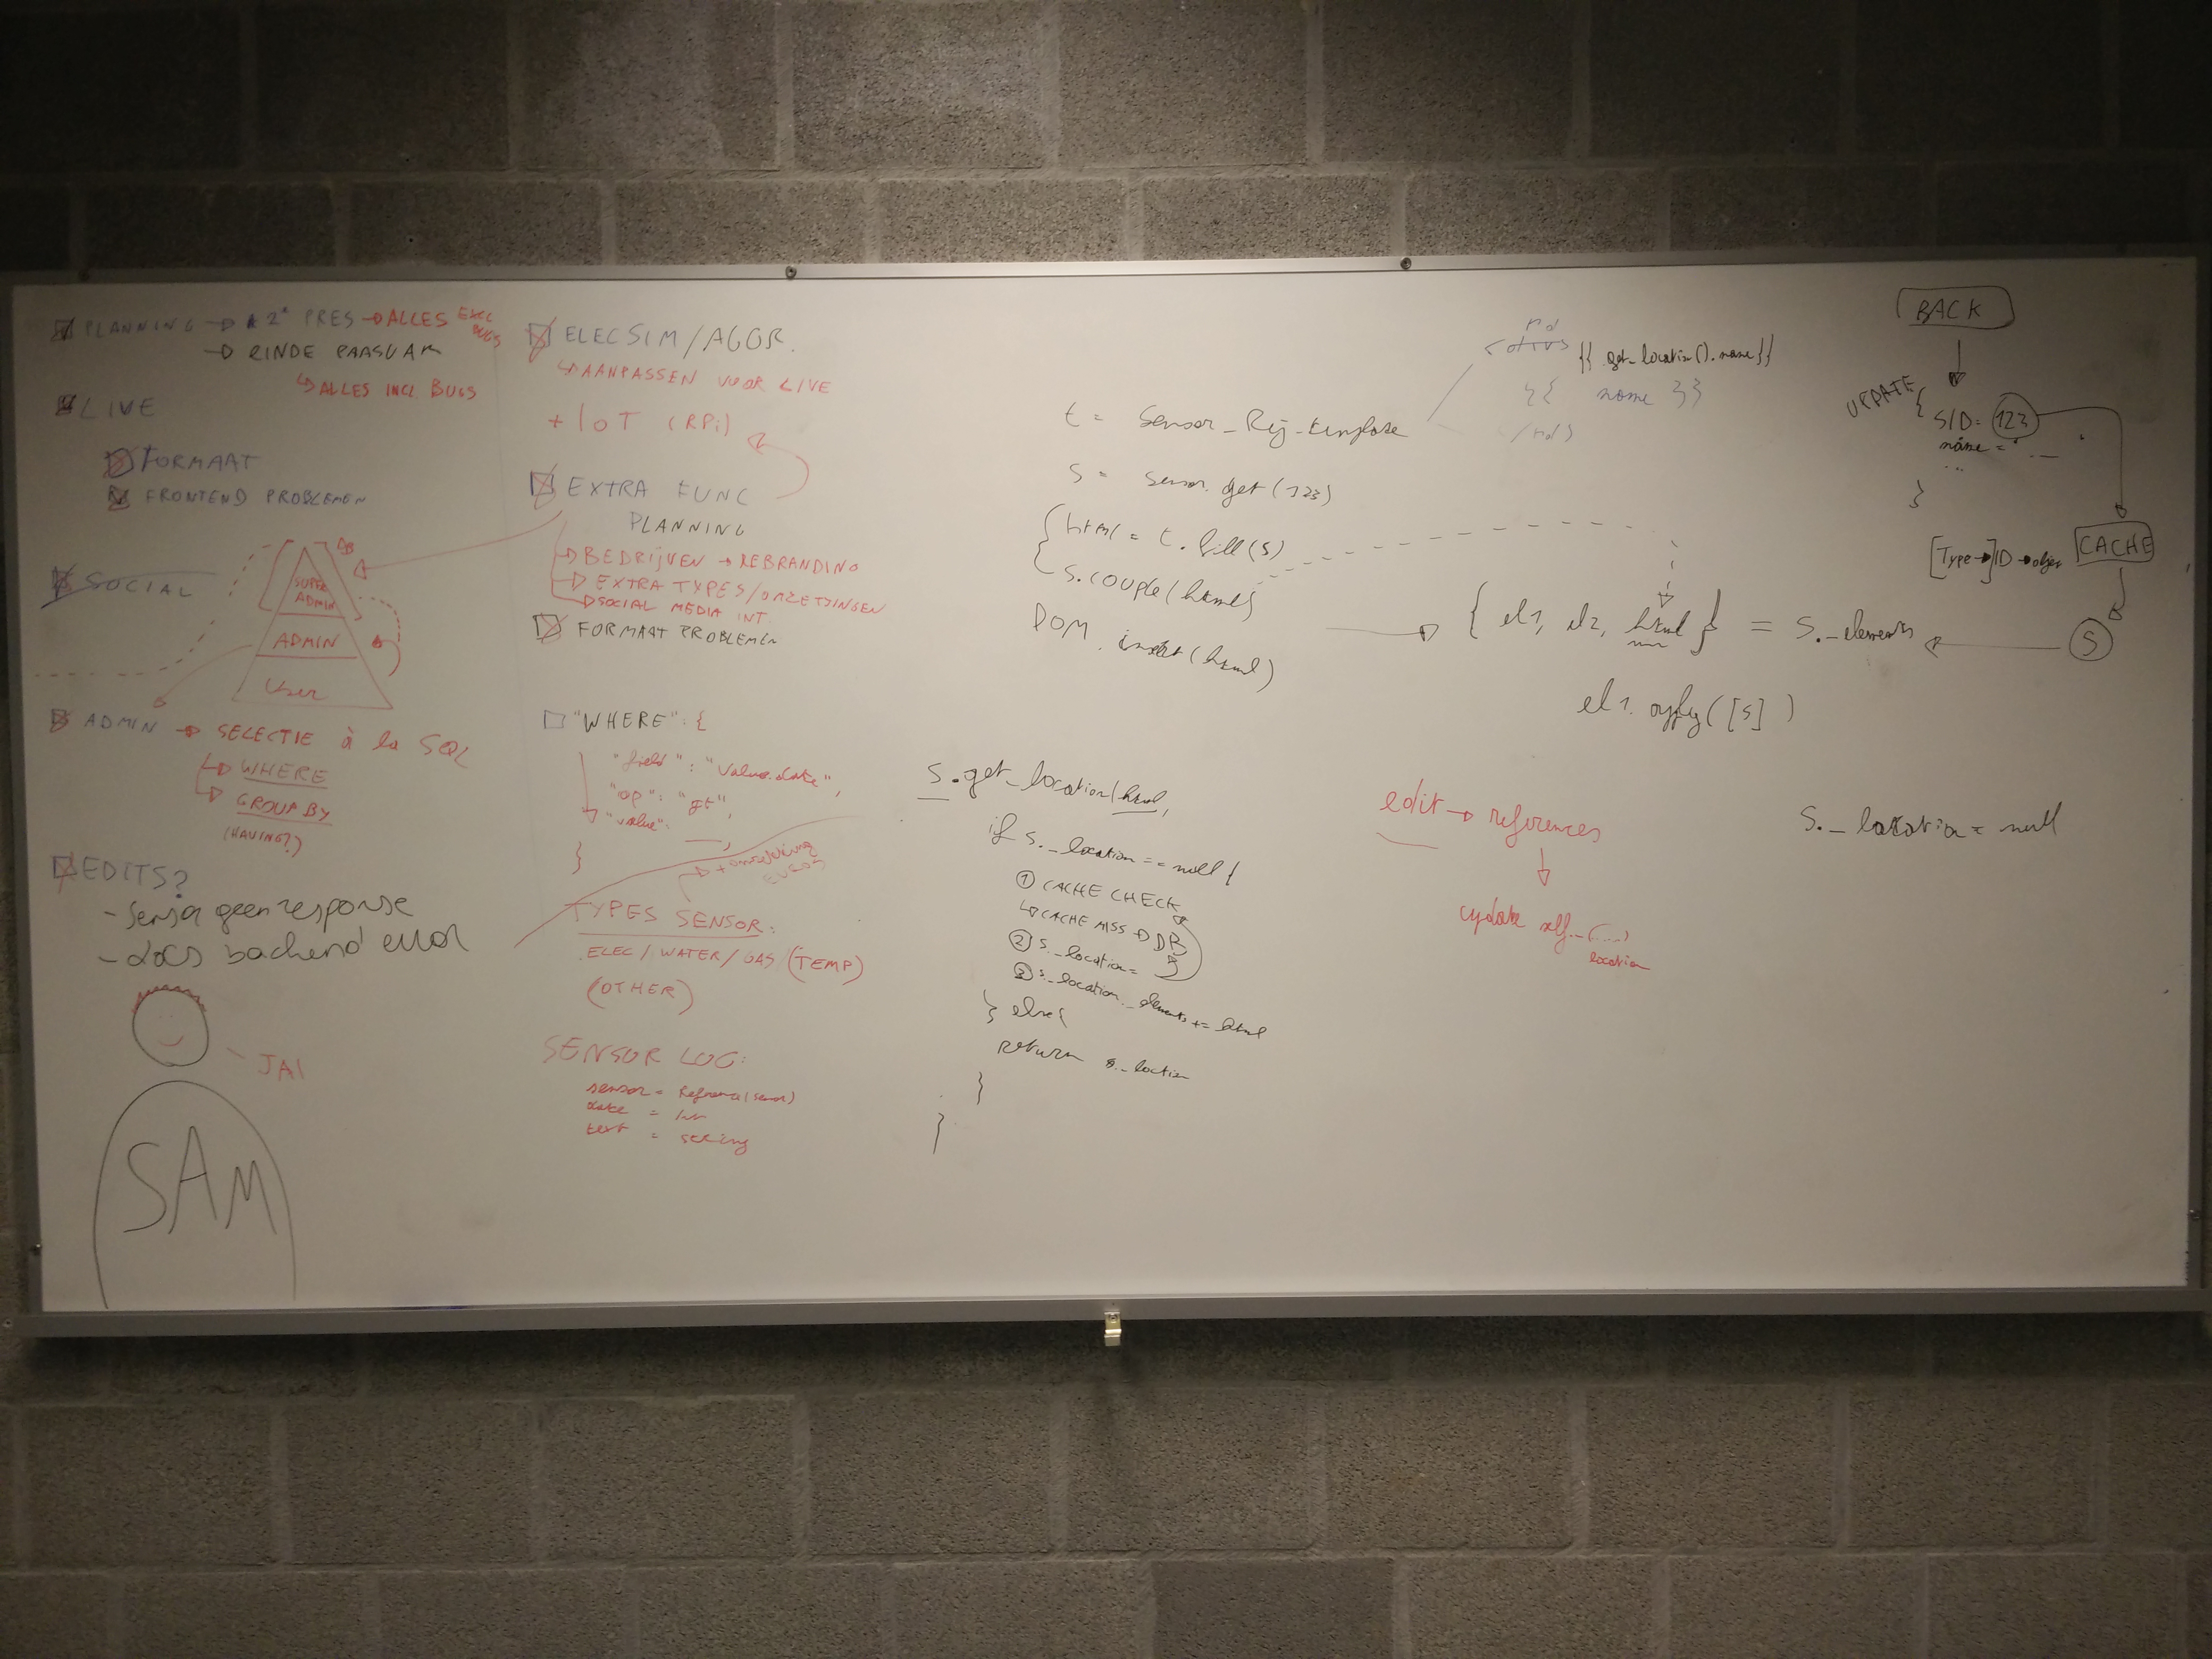 PLANNING → 2e PRES → ALLES EXCL BUGS
→ EINDE PAASVAK
↳ ALLES INCL. BUGS
LIVE
FORMAAT
FRONTEND PROBLEMEN
SOCIAL
SUPER
ADMIN
ADMIN
User
ADMIN → SELECTIE à la SQL
→ WHERE
→ GROUP BY
(HAVING?)
EDITS?
- Sensor geen response
- docs backend error
JA!
SAM
ELECSIM/AGGR.
↳ AANPASSEN VOOR LIVE
+ IoT (RPi)
EXTRA FUNC
PLANNING
→ BEDRIJVEN → REBRANDING
→ EXTRA TYPES/OMZETTINGEN
→ SOCIAL MEDIA INT.
FORMAAT PROBLEMEN
"WHERE": {
"field": "value.date",
"op": "gt",
"value": __,
}
→ + omzetting EUROS
TYPES SENSOR:
ELEC/WATER/GAS (TEMP)
(OTHER)
SENSOR LOG:
sensor = Reference(sensor)
date = Int
text = string
t = Sensor_Rij_template
{{ get_location().name }}
{{ name }}
s = sensor.get(123)
{ html = t.fill(s)
s.couple(html)
DOM.insert(html)
→ { el1, el2, html } = s._elements
el1.apply([s])
BACK
UPDATE {
SID= 123
name = "__
...
}
CACHE
[Type →] ID → objec
S
s.get_location(html,
if s._location == null {
① CACHE CHECK
↳ CACHE MISS → DB
② s._location=
③ s._location._elements += html
} else {
return s._location
}
}
edit → references
update self._(....)
location
s._location = null